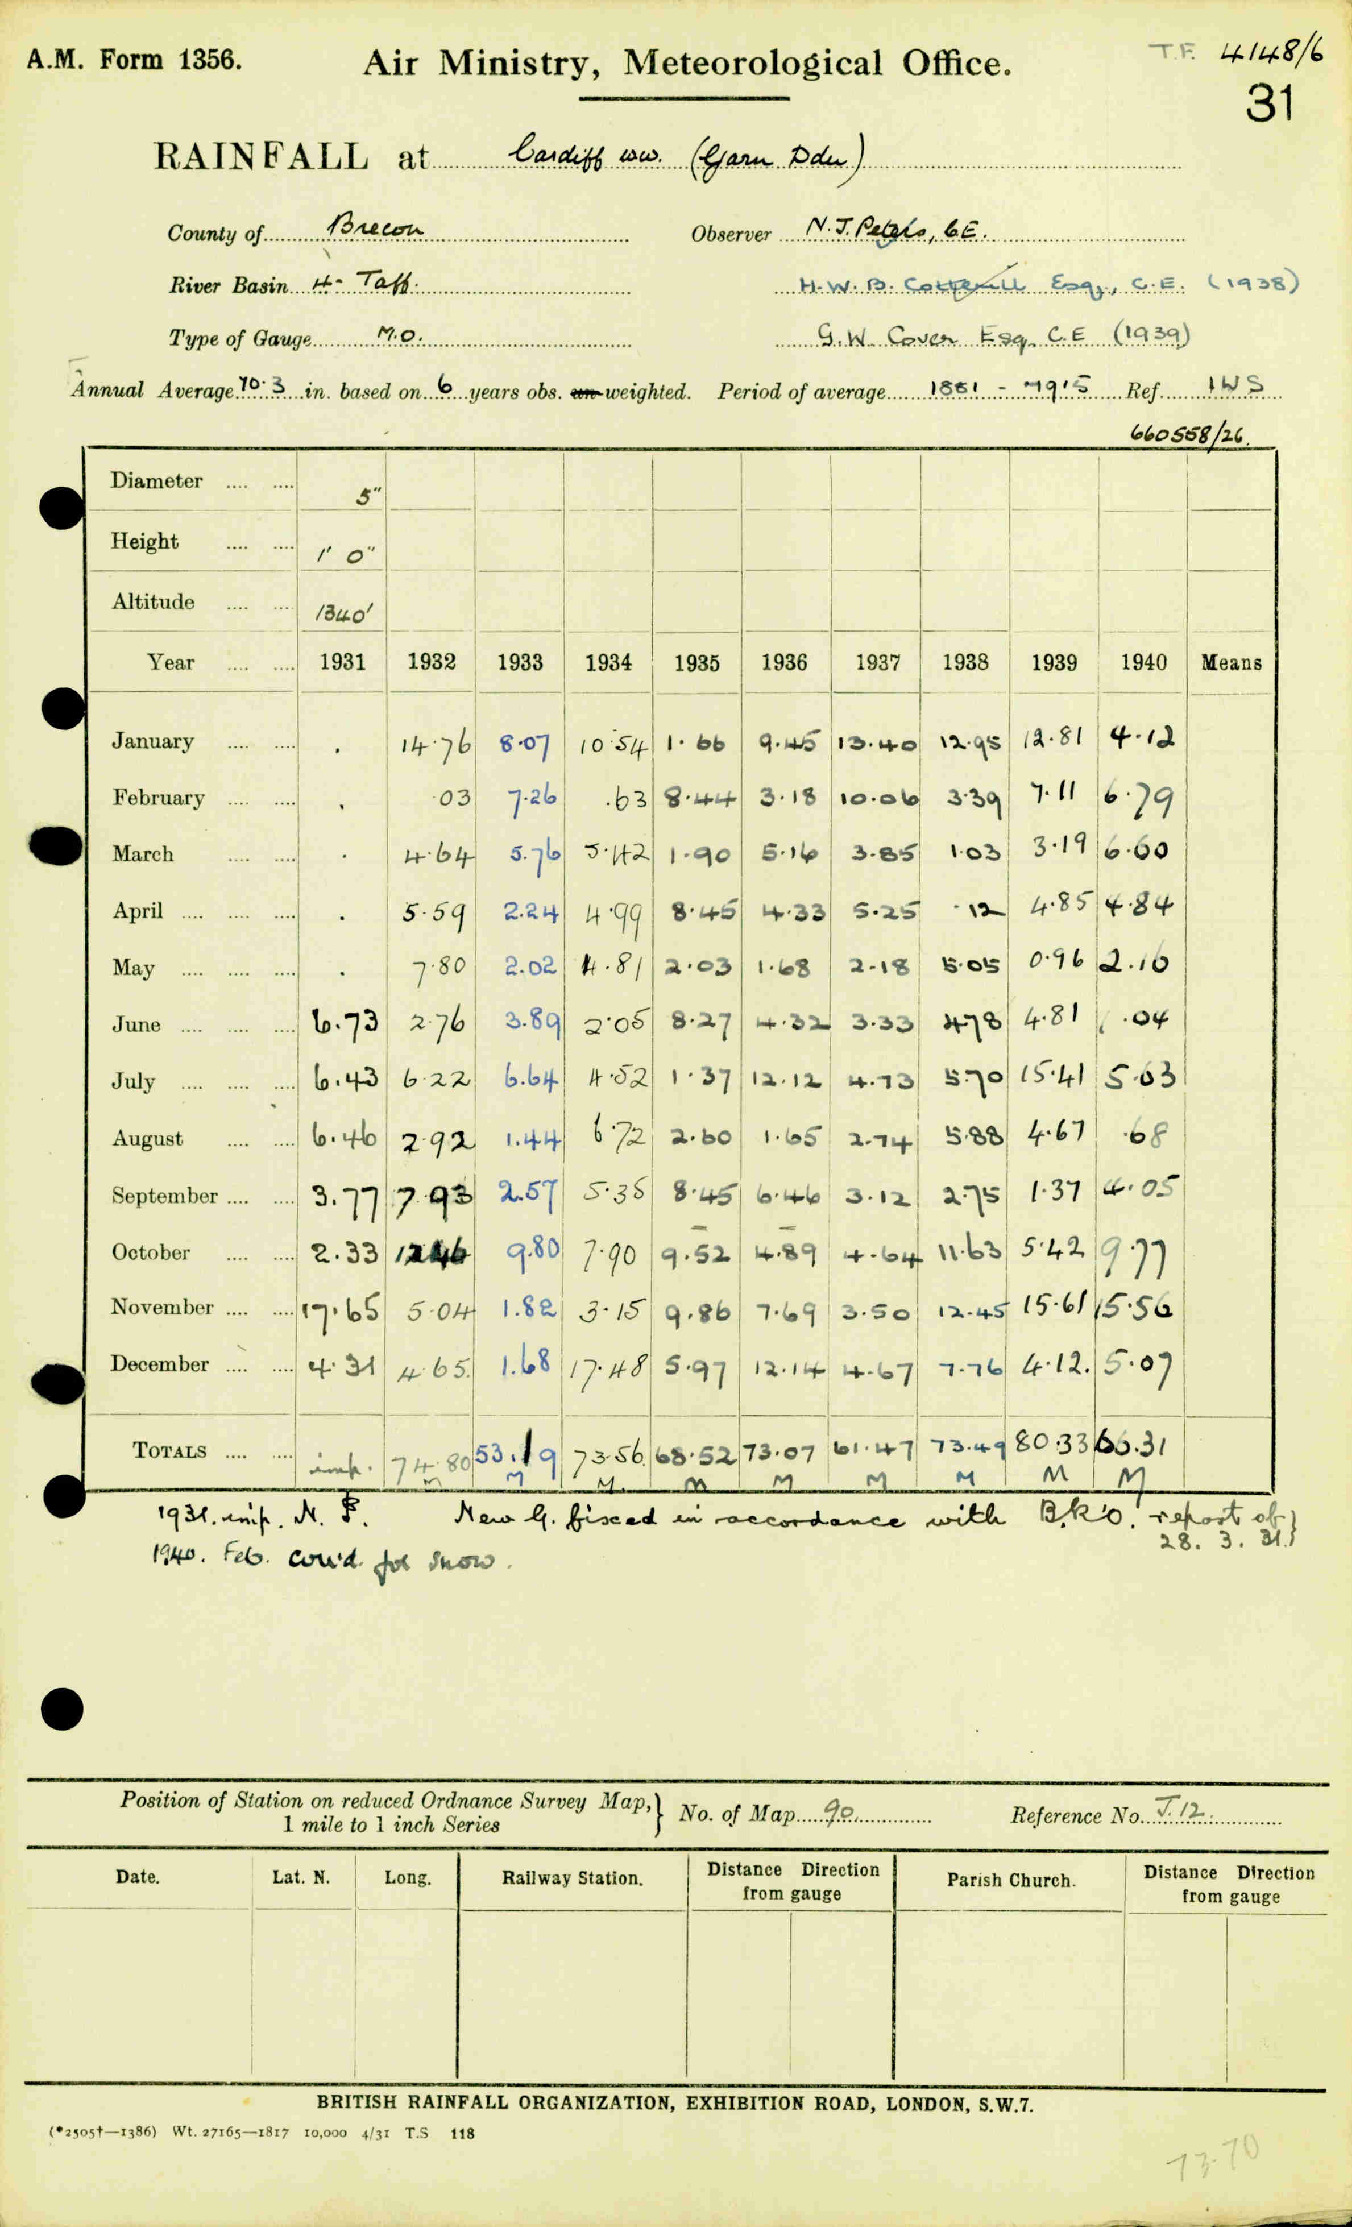 A.M. Form 1356. Air Ministry, Meteorological Office. T.F. 4148/6
31
RAINFALL at Cardiff W.W. (Garn Ddu)
County of Brecon Observer N.J. Peters, C.E.
River Basin H- Taff. H.W.B. Cotterill Esq., C.E. (1938)
Type of Gauge M.O. G.W. Cover Esq. C.E (1939)
Annual Average 70.3 in. based on 6 years obs. un-weighted. Period of average 1881 - 1915 Ref. IWS
660558/26.
Diameter 5"
Height 1' 0"
Altitude 1340'
Year 1931 1932 1933 1934 1935 1936 1937 1938 1939 1940 Means
January . 14.76 8.07 10.54 1.66 9.45 13.40 12.95 12.81 4.12
February . .03 7.26 .63 8.44 3.18 10.06 3.39 7.11 6.79
March . 4.64 5.76 5.42 1.90 5.16 3.85 1.03 3.19 6.60
April . 5.59 2.24 4.99 8.45 4.33 5.25 .12 4.85 4.84
May . 7.80 2.02 4.81 2.03 1.68 2.18 5.05 0.96 2.16
June 6.73 2.76 3.89 2.05 8.27 4.32 3.33 4.78 4.81 1.04
July 6.43 6.22 6.64 4.52 1.37 12.12 4.73 5.70 15.41 5.63
August 6.46 2.92 1.44 6.72 2.60 1.65 2.74 5.88 4.67 .68
September 3.77 7.93 2.57 5.35 8.45 6.46 3.12 2.75 1.37 4.05
October 2.33 12.46 9.80 7.90 9.52 4.89 4.64 11.63 5.42 9.77
November 17.65 5.04 1.82 3.15 9.86 7.69 3.50 12.45 15.61 15.56
December 4.31 4.65 1.68 17.48 5.97 12.14 4.67 7.76 4.12 5.07
TOTALS imp. 74.80 53.19 73.56 68.52 73.07 61.47 73.49 80.33 66.31
M M M M M M M M M
1931. imp. N. New G. fixed in accordance with B.R.O. report of
28. 3. 31.}
1940. Feb. cou'd for snow.
Position of Station on reduced Ordnance Survey Map,} No. of Map 90. Reference No. J.12.
1 mile to 1 inch Series
Date. Lat. N. Long. Railway Station. Distance Direction from gauge Parish Church. Distance Direction from gauge
BRITISH RAINFALL ORGANIZATION, EXHIBITION ROAD, LONDON, S.W.7.
(*2505†—1386) Wt. 27165—1817 10,000 4/31 T.S 118
73.70